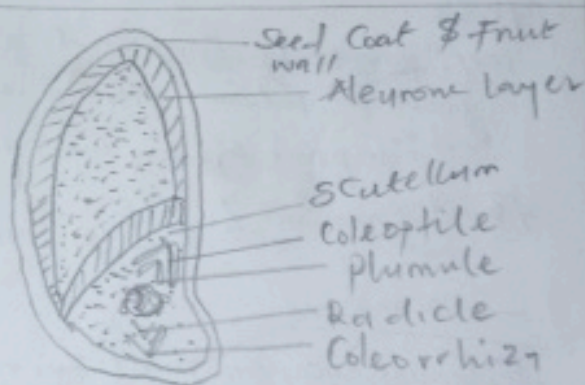 Seed Coat & Fruit
wall
Aleurone layer
Scutellum
Coleoptile
Plumule
Radicle
Coleorrhiza